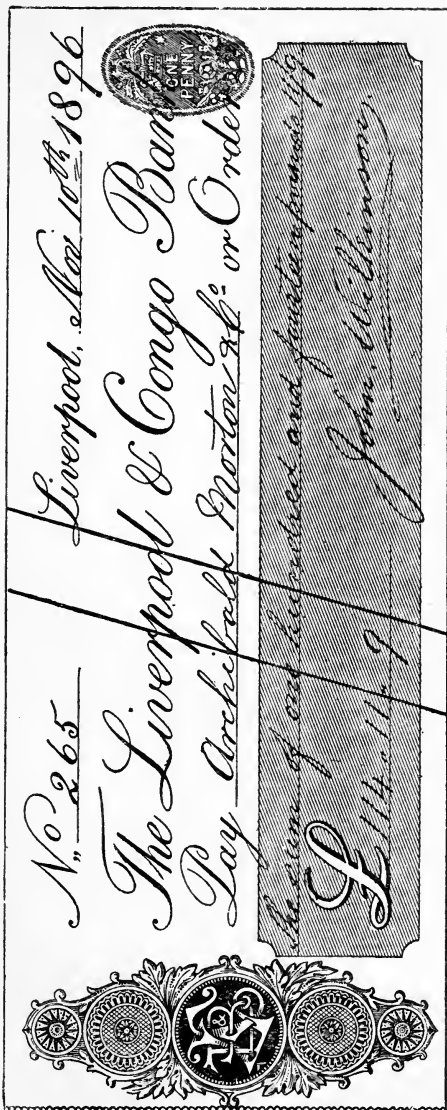 No 265 Liverpool, Nov 10th 1896
The Liverpool & Congo Bank
Pay Archibald Morton & Co or Order
The sum of one hundred and fourteen pounds 11/9
£ 114 " 11 " 9 John Wilkinson.
ONE
PENNY